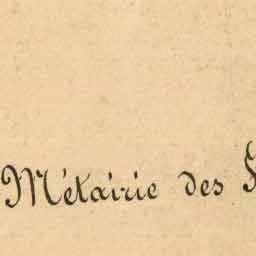 Métairie des